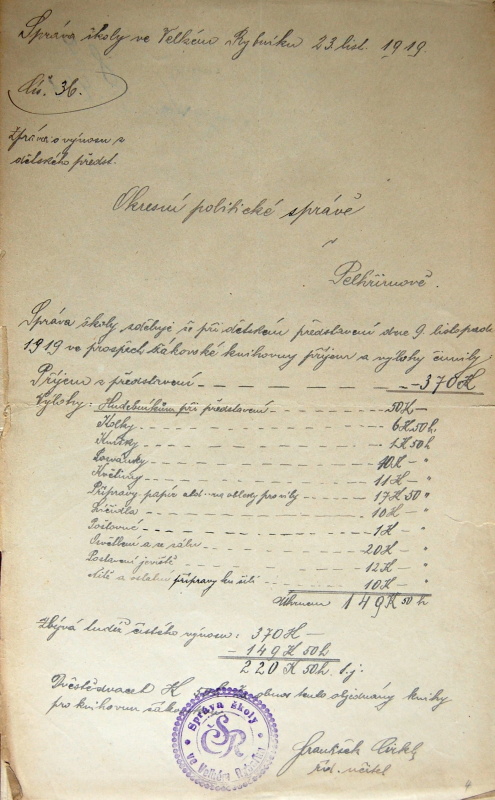 Správa školy ve Velkém Rybníku 23. list. 1919.
čís. 36.
Zpráva o výnosu z
dětského předst.
Okresní politické správě
v
Pelhřimově.
Správa školy sděluje že při dětském představení dne 9. listopadu
1919 ve prospěch žákovské knihovny příjem a výlohy činily:
Příjem z představení - - - 370 K
Výlohy: Hudebníkům při představení - - - 50 K -
Kolky - - - 6 K 50 h.
- - - 1 K 50 h
- - - 10 K - "
Květiny - - - 11 K - "
Přípravy papír - - - 17 K 50 "
Líčidla - - - 10 K - "
Poštovné - - - 1 K - "
Osvětlení a ze sálu - - - 20 K - "
Postavení jeviště - - - 12 K - "
Nitě a ostatní přípravy ku šití - - - 10 K - "
Úhrnem 149 K 50 h
Zbývá tudíž čistého výnosu: 370 K -
- 149 K 50 h
220 K 50 h. t.j.
Dvěstědvacet K obnos tento objednány knihy
pro knihovnu žákov
Správa školy
ve Velkém Rybníku
František
říd. učitel
4